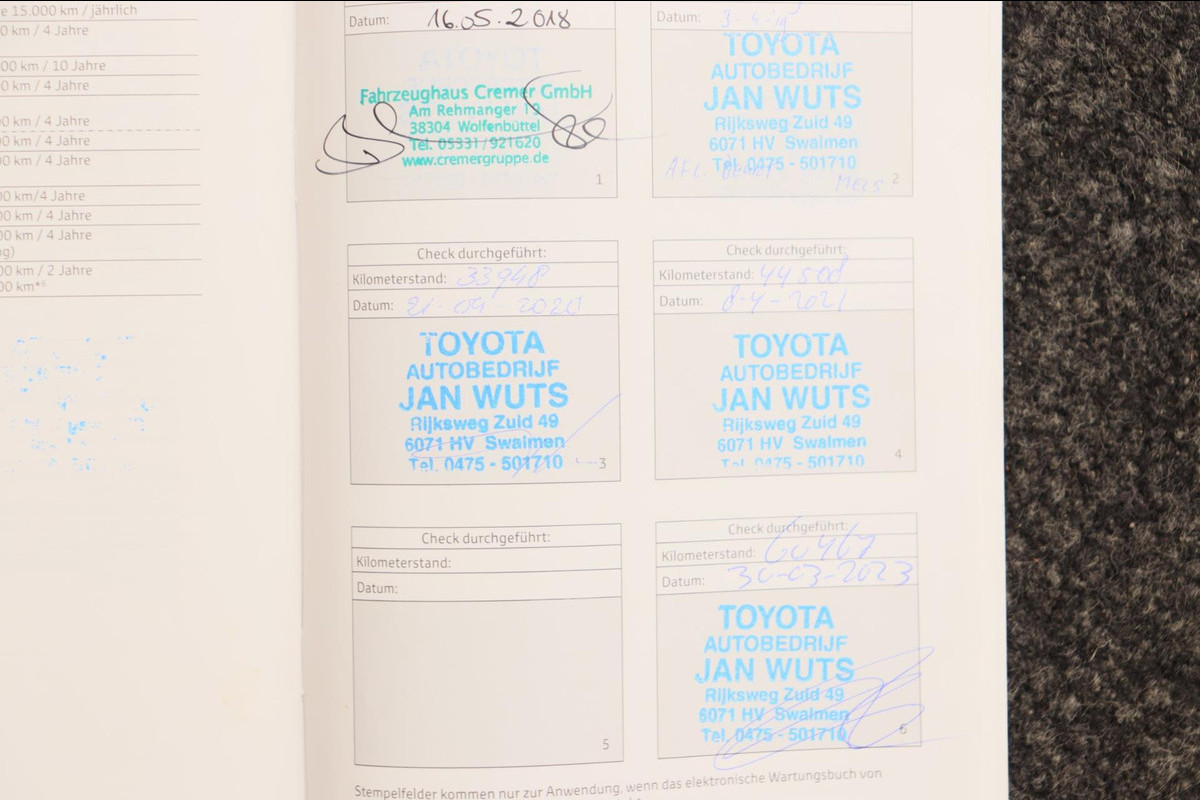 e 15.000 km / jährlich
0 km / 4 Jahre
00 km / 10 Jahre
0 km / 4 Jahre
00 km / 4 Jahre
00 km / 4 Jahre
00 km / 4 Jahre
00 km/4 Jahre
00 km / 4 Jahre
00 km / 4 Jahre
ng)
00 km / 2 Jahre
00 km*⁶
Datum: 16.05.2018
Fahrzeughaus Cremer GmbH
Am Rehmanger 19
38304 Wolfenbüttel
Tel. 05331/921620
www.cremergruppe.de
1
Datum: 3-4-19
TOYOTA
AUTOBEDRIJF
JAN WUTS
Rijksweg Zuid 49
6071 HV Swalmen
Tel. 0475 - 501710
2
Check durchgeführt:
Kilometerstand: 33948
Datum: 21-04-2020
TOYOTA
AUTOBEDRIJF
JAN WUTS
Rijksweg Zuid 49
6071 HV Swalmen
Tel. 0475 - 501710
3
Check durchgeführt:
Kilometerstand: 44508
Datum: 8-4-2021
TOYOTA
AUTOBEDRIJF
JAN WUTS
Rijksweg Zuid 49
6071 HV Swalmen
Tel. 0475 - 501710
4
Check durchgeführt:
Kilometerstand:
Datum:
5
Check durchgeführt:
Kilometerstand: 60467
Datum: 30-03-2023
TOYOTA
AUTOBEDRIJF
JAN WUTS
Rijksweg Zuid 49
6071 HV Swalmen
Tel. 0475 - 501710
6
Stempelfelder kommen nur zur Anwendung, wenn das elektronische Wartungsbuch von